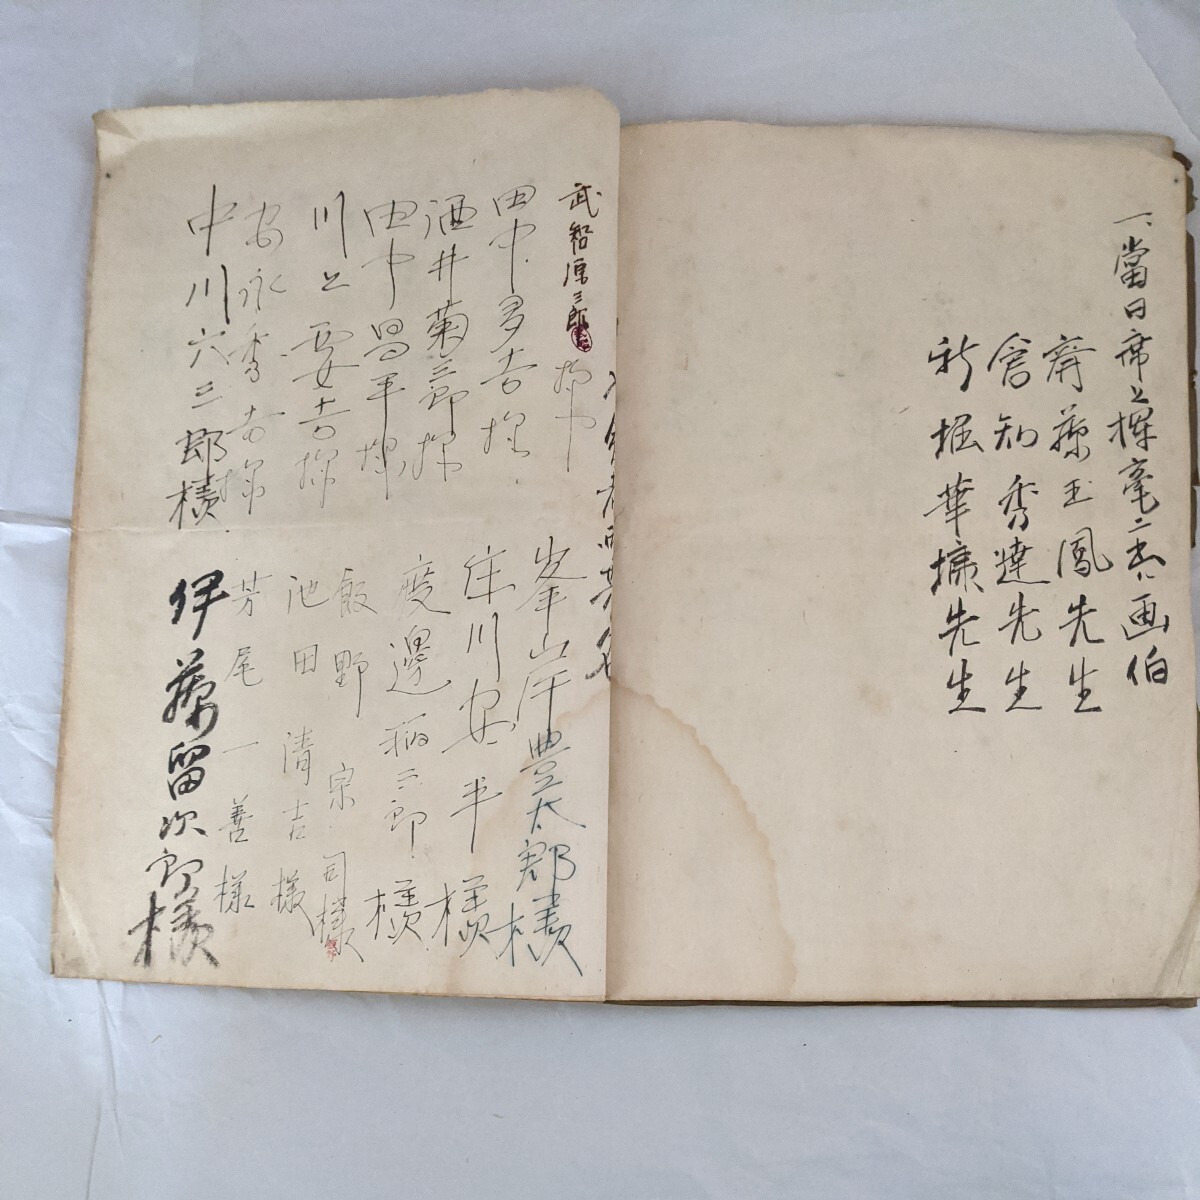 一、當日席上揮毫ニ出ハ画伯
齊藤玉鳳先生
倉知秀達先生
新堀華
先生
武智源三郎様
田中多吉様
酒井菊三郎様
田中昌平様
川上要吉様
安永秀吉様
中川六三郎様
峯山岸豊太郎様
庄川安平様
渡邊
二郎様
飯野宗司様
池田清吉様
芳尾一善様
伊藤留次郎様